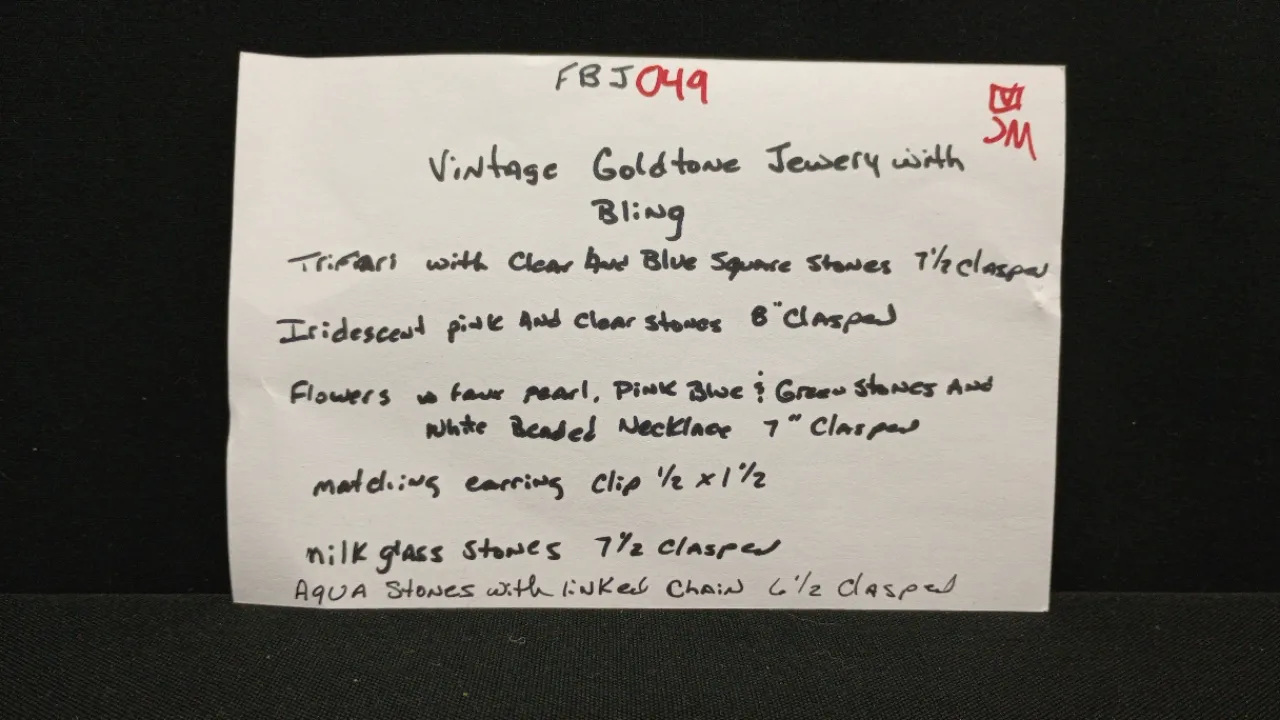 FBJ 049
JM
Vintage Goldtone Jewery with
Bling
Trifari with Clear And Blue Square Stones 7 1/2 clasped
Iridescent pink And Clear stones 8" Clasped
Flowers w faux pearl, Pink Blue & Green Stones And
White Beaded Necklace 7" Clasped
matching earring clip 1/2 x 1 1/2
milk glass stones 7 1/2 clasped
Aqua Stones with linked Chain 6 1/2 Clasped